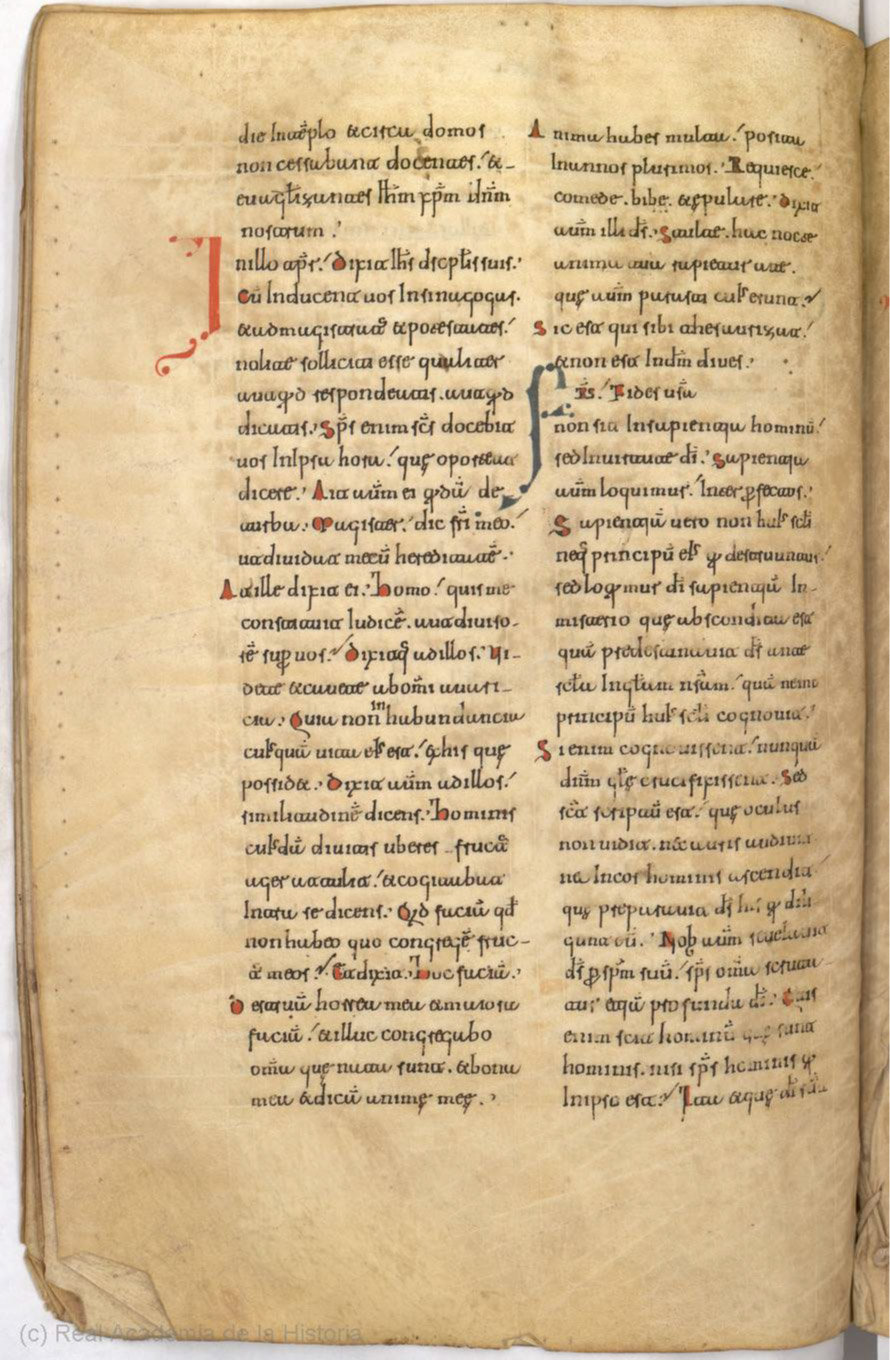 die In tēplo & circa domos
non cessabant docentes. &
euangł̄izantes Ih̄m xp̄m dn̄m
nostrum.
In illo tp̄r. Dixit Ih̄s discplīs suis.
Cū Inducent uos In sinagogas.
& ad magistratūs & potestates.
nolite solliciti esse qualiter
aut quid respondeatis. aut quid
dicatis. Sp̄s enim sc̄s docebit
uos In Ipsa hora. quę oporteat
dicere. Ait aūm ei quidā de
turba. Magister. dic frī meo.
ut diuidat mecū hereditatē.
At ille dixit ei. Homo. quis me
constituit Iudicē. aut diuiso-
rē sup̄ uos. Dixitq̄ ad illos. Ui-
dete & cauete ab om̄i auari-
cia. Quia non in habundancia
cuisquā uita eis est. ex his quę
possidet. Dixit aūm ad illos.
similitudinē dicens. Hominis
cuisdā diuitis uberes fructūs
ager attulit. & cogitabat
Intra se dicens. Quid faciā qd̄
non habeo quo congregē fruc-
tūs meos. Et dixit. Hoc faciā.
Destruā horrea mea & maiora
faciā. & illuc congregabo
om̄ia quę nata sunt. & bona
mea & dicā animę meę.
Anima habes multa. posita
In annos plurimos. Requiesce.
comede. bibe. & epulare. Dixit
aūm illi dš. Stulte. hac nocte
anima tua repetunt a te.
quę aūm parasti cuis erunt.
Sic est qui sibi thesaurizat.
& non est In dm̄ diues.
Frs. Fides ur̄a
non sit In sapientia hominū.
sed In uirtute dī. Sapientia
aūm loquimur. Inter perfectos.
Sapientiā uero non huis sclī
neq̄ principū eis qui destruuntur.
sed loquimur dī sapientiā In
misterio quę abscondita est
quā predestinauit dš ante
sclā In głam nr̄am. quā nemo
principū huis sclī cognouit.
Si enim cognouissent. nunquā
dn̄m głę crucifixissent. Sed
sc̄t scriptū est. quę oculus
non uidit. nēc auris audiuit
nec In cor hominis ascendit
quę preparauit dš his qui dili
gunt eū. Nob̄ aūm reuelauit
dš per sp̄m suū. sp̄s om̄ia scruta-
tur etiā profunda dī. Quis
enim scit hominū quę sunt
hominis. nisi sp̄s hominis qui
In ipso est. Ita & quę dī sunt
(c) Real Academia de la Historia